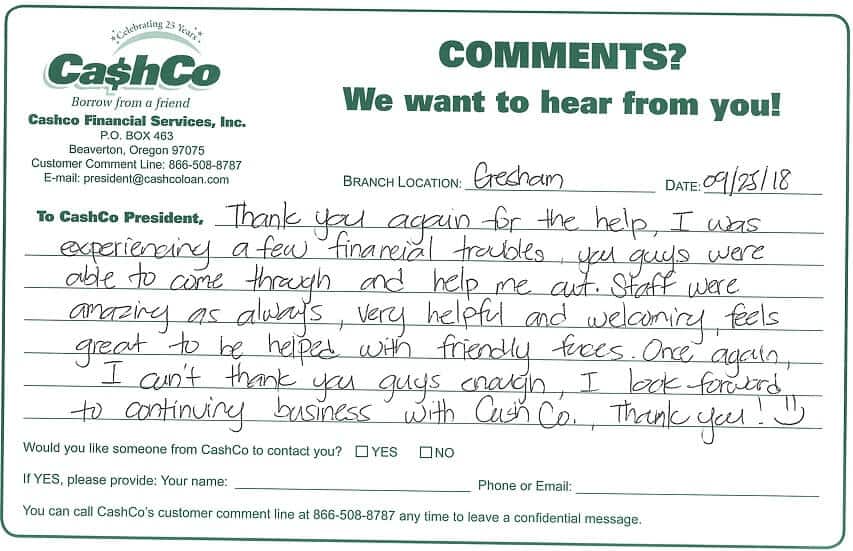 Celebrating 25 Years
Ca$hCo
Borrow from a friend
Cashco Financial Services, Inc.
P.O. BOX 463
Beaverton, Oregon 97075
Customer Comment Line: 866-508-8787
E-mail: president@cashcoloan.com
COMMENTS?
We want to hear from you!
BRANCH LOCATION: Gresham DATE: 09/25/18
To CashCo President, Thank you again for the help, I was
experiencing a few financial troubles, you guys were
able to come through and help me out. Staff were
amazing as always, very helpful and welcoming, feels
great to be helped with friendly faces. Once again,
I can't thank you guys enough, I look forward
to continuing business with Cash Co., Thank you! :)
Would you like someone from CashCo to contact you? ☐ YES ☐ NO
If YES, please provide: Your name: Phone or Email:
You can call CashCo's customer comment line at 866-508-8787 any time to leave a confidential message.